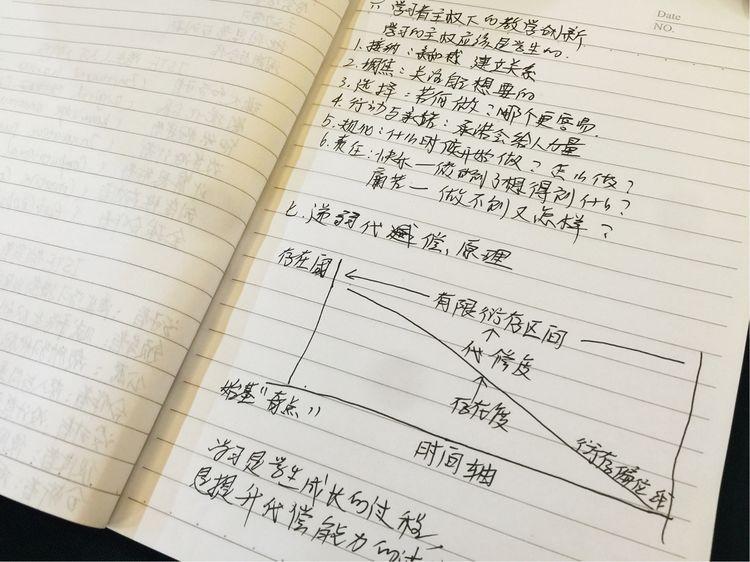 Date
NO.
六.学习者主权下的教学创新
学习的主权应该是学生的.
1.接纳: 建立关系
2.调焦: 关注自己想要的
3.选择: 若何做?哪个更容易.
4.行动与承诺: 承诺会给人力量
5.规化: 什么时候开始做?怎么做?
6.责任: 快乐一做到了想得到什么?
痛苦一做不到又怎样?
七.递弱代偿,原理
存在阈
有限衍存区间
代偿度
存在度
始基"奇点"
时间轴
衍存偏位
学习是学生成长的过程,
是提升代偿能力的过